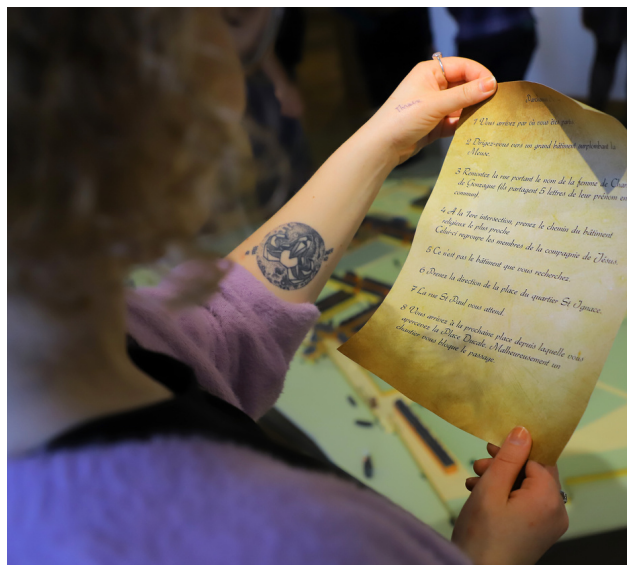 1 Vous arrivez par
2 Dirigez-vous vers un grand bâtiment surplombant la
Meuse.
3 Remontez la rue portant le nom de la femme de Char
de Gonzague fils partageant 5 lettres de leur prénom en
commun.
4 A la 1ere intersection, prenez le chemin du bâtiment
religieux le plus proche
Celui-ci regroupe les membres de la compagnie de Jésus.
5 Ce n'est pas le bâtiment que vous recherchez.
6 Prenez la direction de la place du quartier St Ignace.
7 La rue St Paul vous attend.
8 Vous arrivez à la prochaine place depuis laquelle vous
apercevez la Place Ducale. Malheureusement un
chantier vous bloque le passage.